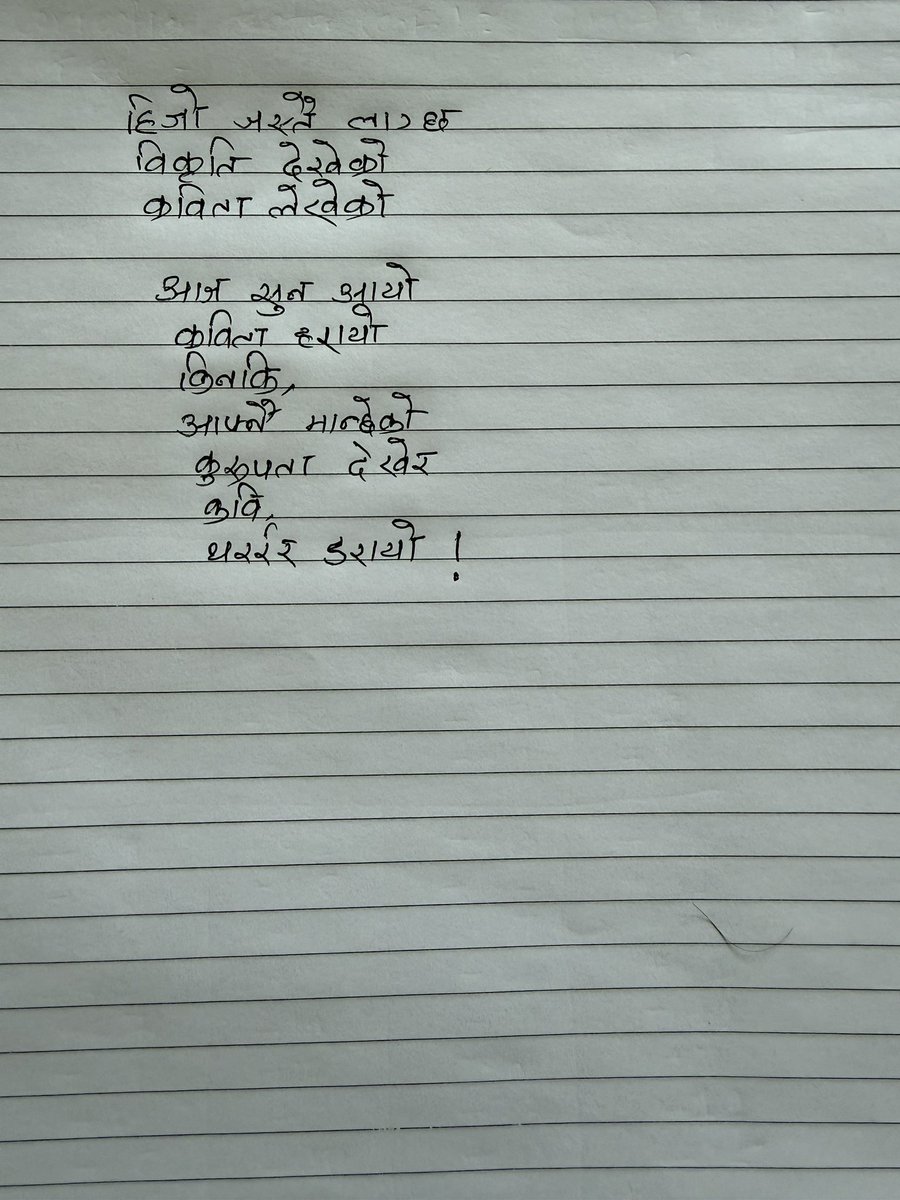 हिजो जस्तै लाग्छ
विकृति देखेको
कविता लेखेको
आज सुन आयो
कविता हरायो
किनकि,
आफ्नै मान्छेको
कुरूपता देखेर
कवि,
थर्रर डरायो !